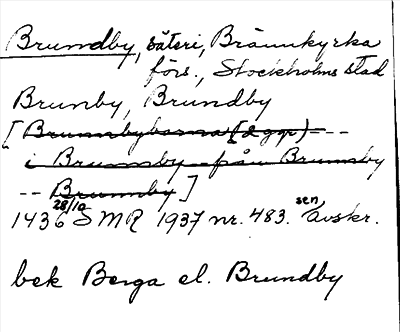 Brundby, säteri, Brännkyrka
förs., Stockholms stad
Brunby, Brundby
[Brunnbyborna (dggr) ---
i Brunnby - från Brunnby
-- Brunnby]
1436 28/10 SMR 1937 nr. 483. sen avskr.
bek Berga el. Brundby